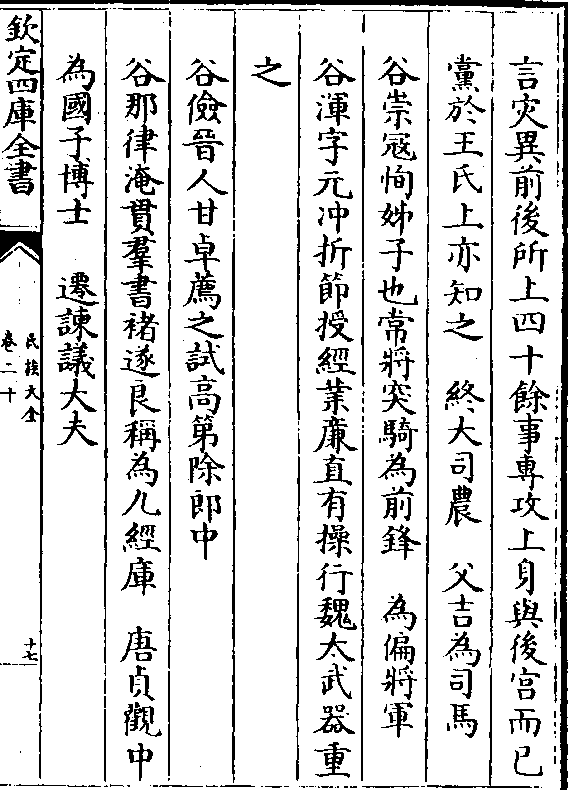 言灾異前後所上四十餘事專攻上身與後宫而已
黨於王氏上亦知之　終大司農　父吉為司馬
谷崇冦恂姊子也常將突騎為前鋒　為偏將軍
谷渾字元冲折節授經業㢘直有操行魏太武器重
之
谷儉晉人甘卓薦之試高第除郎中
谷那律淹貫羣書褚遂良稱為九經庫　唐貞觀中
為國子博士　遷諫議大夫
欽定四庫全書
氏族大全
卷二十
十七